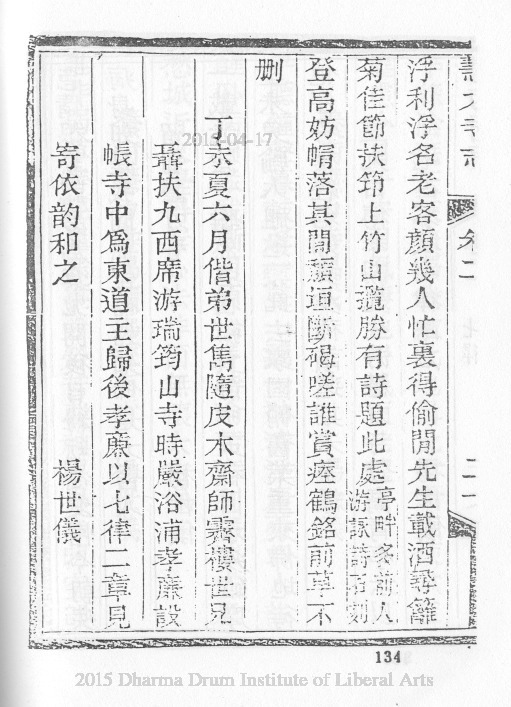 浮利浮名老客顏幾人忙裏得偷閒先生載酒尋籬
菊佳節扶筇上竹山攬勝有詩題此處亭畔多前人游詠詩石刻
登高妨帽落其間頽垣斷碣嗟誰賞瘞鶴銘前草不
刪
丁未夏六月偕弟世雋隨皮木齋師霽樓世兄
聶扶九西席游瑞筠山寺時嚴浴浦孝廉設
帳寺中爲東道主歸後孝廉以七律二章見
寄依韵和之
楊世儀
134
2015-04-17
2015 Dharma Drum Institute of Liberal Arts